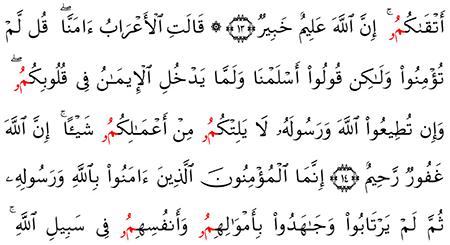 أَتْقَىٰكُمُۥٓ ۚ إِنَّ ٱللَّهَ عَلِيمٌ خَبِيرٌ ﴿١٣﴾ ۞ قَالَتِ ٱلْأَعْرَابُ ءَامَنَّا ۖ قُل لَّمْ
تُؤْمِنُوا۟ وَلَٰكِن قُولُوٓا۟ أَسْلَمْنَا وَلَمَّا يَدْخُلِ ٱلْإِيمَٰنُ فِى قُلُوبِكُمُۥ ۖ
وَإِن تُطِيعُوا۟ ٱللَّهَ وَرَسُولَهُۥ لَا يَلِتْكُمُۥ مِنْ أَعْمَٰلِكُمُۥ شَيْـًٔا ۚ إِنَّ ٱللَّهَ
غَفُورٌ رَّحِيمٌ ﴿١٤﴾ إِنَّمَا ٱلْمُؤْمِنُونَ ٱلَّذِينَ ءَامَنُوا۟ بِٱللَّهِ وَرَسُولِهِۦ
ثُمَّ لَمْ يَرْتَابُوا۟ وَجَٰهَدُوا۟ بِأَمْوَٰلِهِمُۥ وَأَنفُسِهِمُۥ فِى سَبِيلِ ٱللَّهِ ۚ